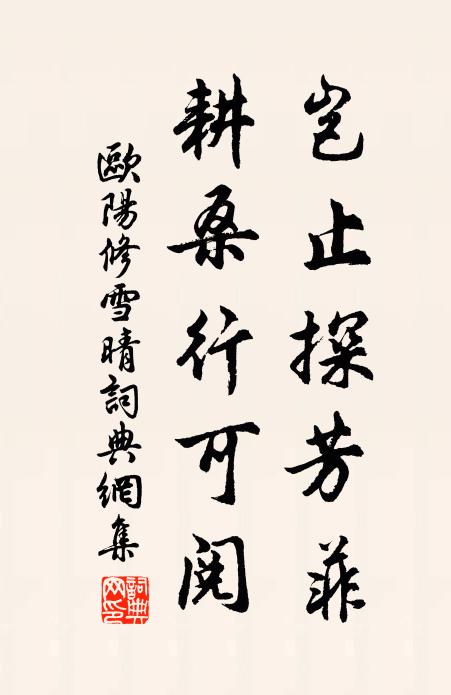 豈止探芳菲
耕桑行可閱
歐陽修雪晴詞典網集
詞典網印